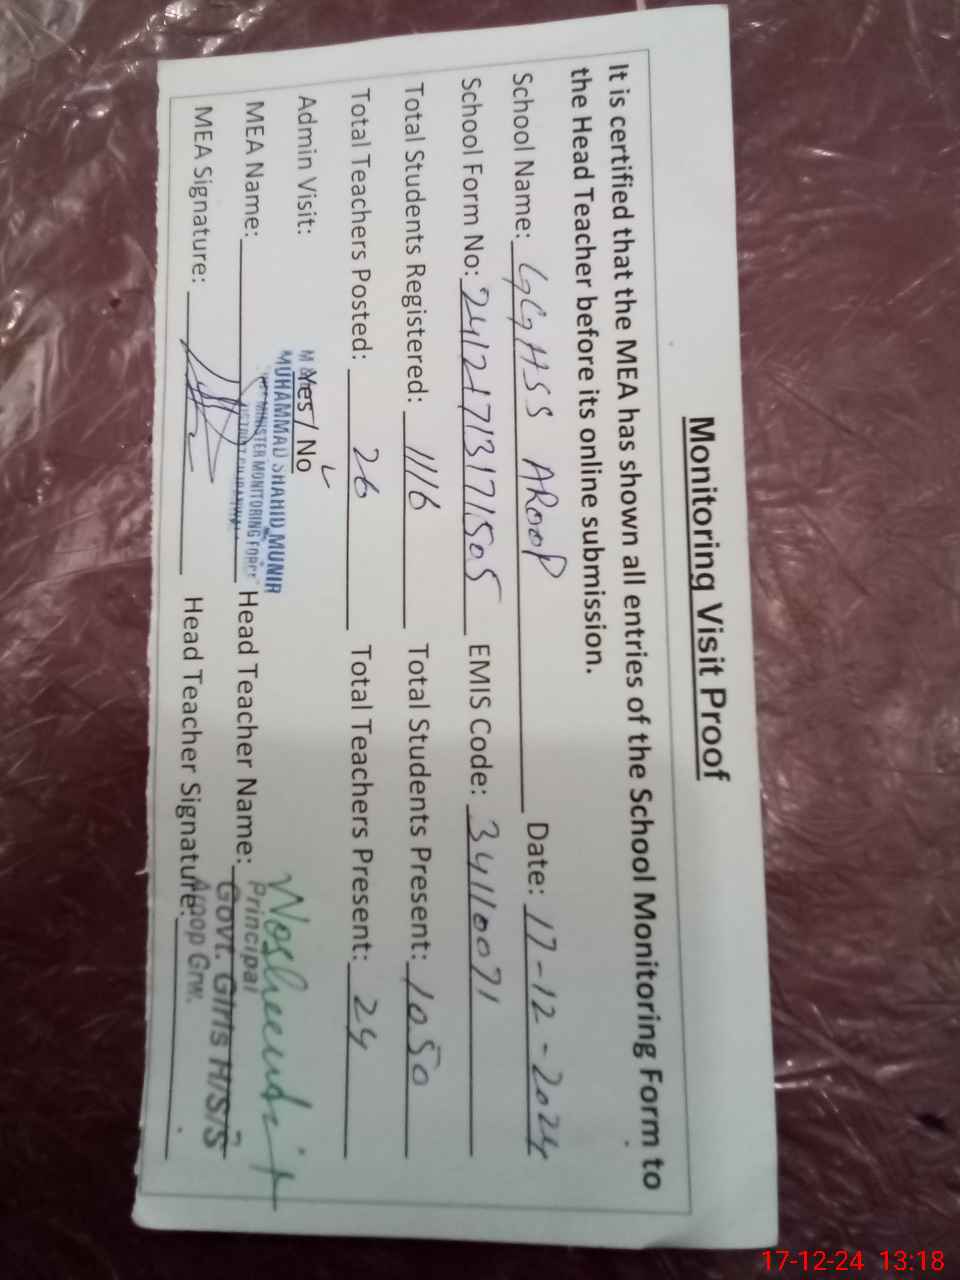 Monitoring Visit Proof
It is certified that the MEA has shown all entries of the School Monitoring Form to
the Head Teacher before its online submission.
School Name: GGHSS AROOP Date: 17-12-2024
School Form No: 24121713171505 EMIS Code: 34110071
Total Students Registered: 1116 Total Students Present: 1050
Total Teachers Posted: 26 Total Teachers Present: 24
Admin Visit: Yes / No ✓
MUHAMMAD SHAHID MUNIR
MINISTER MONITORING FORCE
MEA Name: Head Teacher Name:
Principal
Govt. Girls H/S/S
Aroop Grw.
MEA Signature: Head Teacher Signature:
17-12-24 13:18